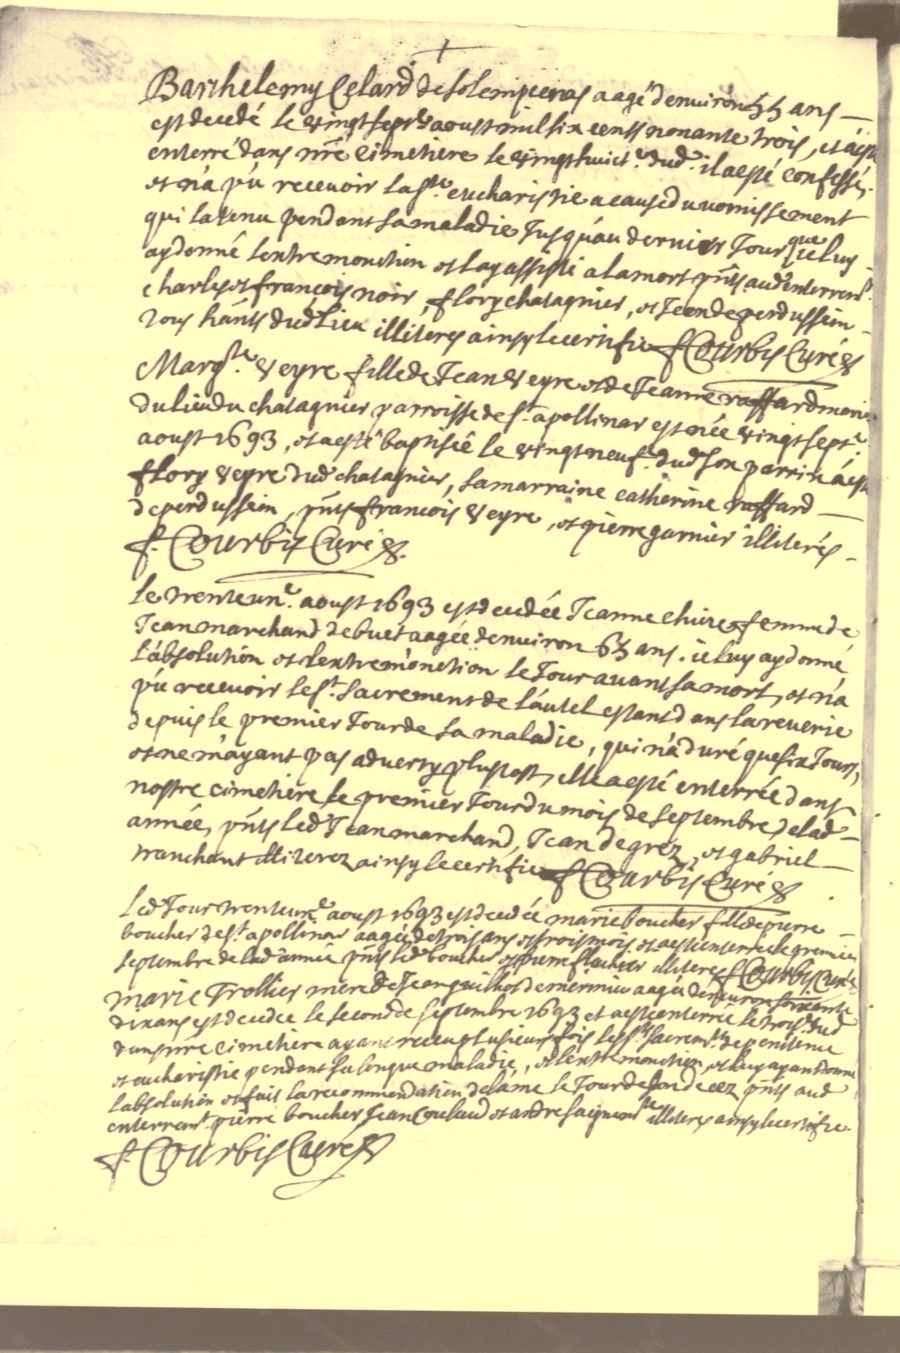 Barthelemy Celard de solempierras aagé d'environ 55 ans
est decedé le vingtsept.e aoust mil six cents nonante trois, et a esté
enterré dans nre Cimetiere le vingthuict.e dud. il a esté confessé,
et n'a pû recevoir la ste. eucharistie a cause du vomissement
qui la tenu pendant sa maladie Jusqu'au dernier Jour que ie luy
ay donné lextremonction et lay assisté a la mort pnts aud. enterremt.
charles et françois noir, flory chatagnier, et Jean de perdussein
tous hants dud. Lieu illiteres ainsy le certifie f Courbis Curé
Margte. Veyre fille de Jean Veyre et de Jeanne raffard mariés
du lieu du chatagnier parroisse de st. apollinar est née vingtsept.e
aoust 1693, et a esté baptisée le vingtneuf.e dud. son parrin a esté
flory veyre dud. chatagnier, sa marraine catherine raffard
de perdussein, pnts françois Veyre, et pierre garnier illiterés
f. Courbis Curé
Le trenteun.e aoust 1693 est decedée Jeanne chuire femme de
Jean marchand de buet aagée d'environ 65 ans. ie luy ay donné
l'absolution et l'extremonction le Jour avant sa mort, et n'a
pû recevoir le st. sacrement de l'autel estant dans la reverie
depuis le premier Jour de sa maladie, qui n'a duré que six Jours,
et ne m'ayant pas adverty plustost, elle a esté enterrée dans
nostre cimetiere le premier Jour du mois de septembre de lad.
année, pnts led. Jean marchand, Jean degrez, et gabriel
tranchant illiterez ainsy le certifie f Courbis Curé
Led. Jour trenteun.e aoust 1693 est decedée marie boucher fille de pierre
boucher de st. apollinar aagée de trois ans et trois mois et a esté enterrée le premier
septembre de lad. année pnts led. boucher et pierre flachier illiteres f Courbis Curé
Marie Trollier mere de Jean guilhot de mermieu aagée d'environ soixante
dix ans est decedée le second de septembre 1693 et a esté enterrée le trois.e dud.
dans nre cimetiere ayant receu plusieurs fois les sts sacremts. de penitence
et eucharistie pendant sa longue maladie, et l'extremonction, et luy ayant donné
l'absolution et fait la recommandation de lame le Jour de son decez pnts aud.
enterremt. pierre boucher Jean Coulaud et andre saignemorte illiteres ainsy le certifie
f. Courbis Curé